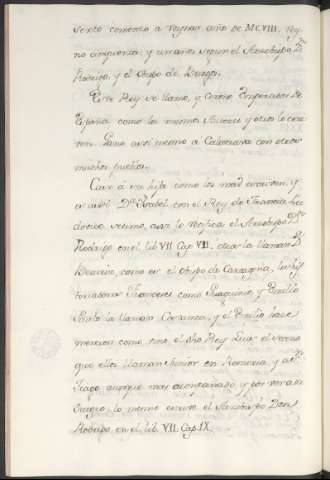 sexto comenzo a Reynar año de MCVIII. Rey-
no cinquenta y un años segun el Arzobispo Dn.
Rodrigo, y el Obispo de Burgos.
Este Rey se llamo, y Corono Emperador de
España como los mismos Autores y otros lo cuen-
tan. Gano assi mesmo à Calatrava con otros
muchos pueblos.
Casò à su hija como los mas escriven, y
es assi Da. Ysabel con el Rey de Francia Lu-
dovico septimo, assi lo testifica el Arzobispo Dn.
Rodrigo en el lib VII. Cap VII. otros la llaman Da.
Beatriz, como es el Obispo de Cartagena, los His-
toriadores Franceses como Roberto Gaguinio, y Emilio
Paulo la llaman Constanza, y el Emilio hace
mencion como vino el dho Rey Luis el septimo
que ellos llaman Junior en Romeria a Sn.
Tiago, aunque mas acompañado, y por otras a
lo mesmo escrive el Arzobispo Don
Rodrigo en el lib. VII. Cap. IX.